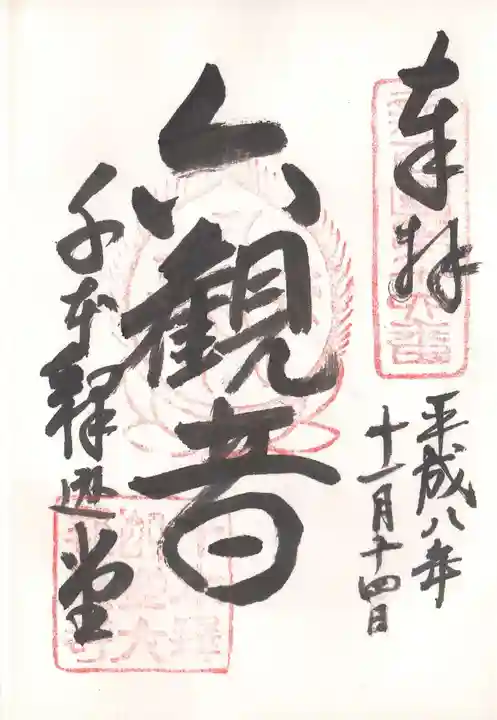 奉拝
平成八年
十一月十四日
六観音
千本釋迦堂